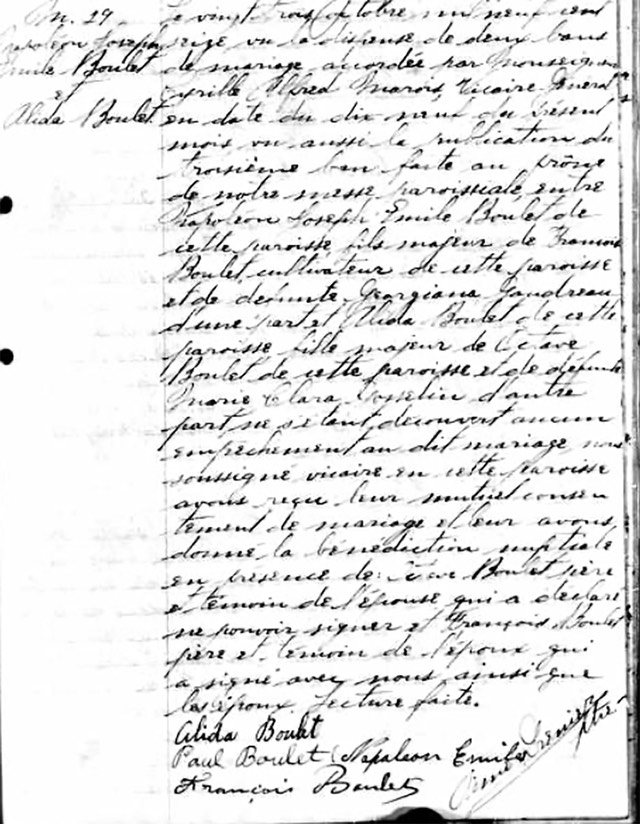 M. 29
Napoléon Joseph
Emile Boulet
et
Alida Boulet
Le vingt trois octobre mil neuf cent
seize vu la dispense de deux bans
de mariage accordée par Monseigneur
Cyrille Alfred Marois Vicaire Général
en date du dix neuf du présent
mois vu aussi la publication du
troisième ban faite au prône
de notre messe paroissiale entre
Napoléon Joseph Emile Boulet de
cette paroisse fils majeur de François
Boulet cultivateur de cette paroisse
et de défunte Georgiana Gaudreau
d'une part et Alida Boulet de cette
paroisse fille majeur de Octave
Boulet de cette paroisse et de défunte
Marie Clara Gosselin d'autre
part ne s'étant découvert aucun
empêchement au dit mariage nous
soussigné vicaire en cette paroisse
avons reçu leur mutuel consen
tement de mariage et leur avons
donné la bénédiction nuptiale
en présence de Boulet père
et témoin de l'épouse qui a déclaré
ne pouvoir signer et François Boulet
père et témoin de l'époux qui
a signé avec nous ainsi que
les époux. Lecture faite.
Alida Boulet
Paul Boulet Napoleon Emile
François Boulet
Grenier ptre